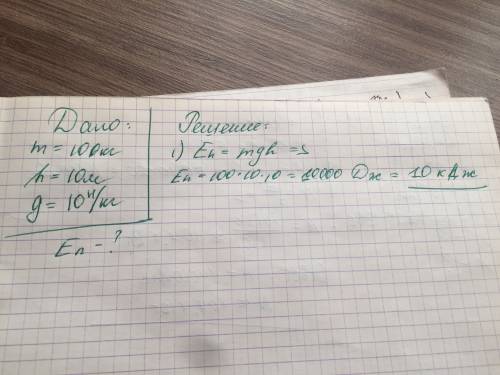 Дано:
m = 100кг
h = 10м
g = 10 Н/кг
Еп - ?
Решение:
1) Еп = mgh =>
Еп = 100·10·10 = 10000 Дж = 10 кДж